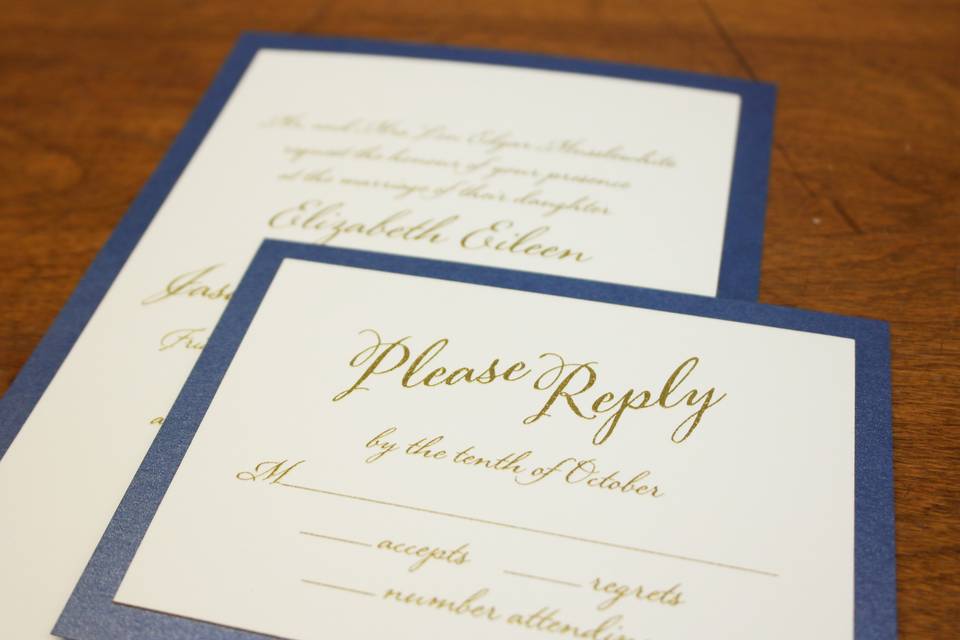 and Mrs. Edgar
request the honour of your presence
at the marriage of their daughter
Elizabeth Eileen
Please Reply
by the tenth of October
M
accepts regrets
number attending